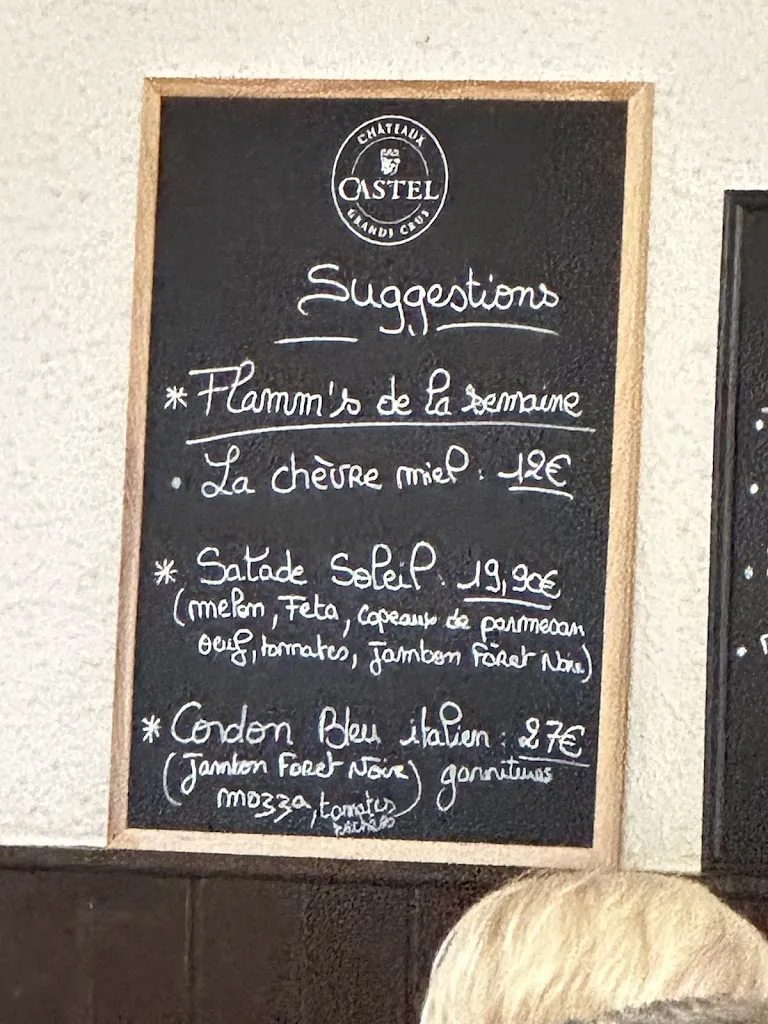 CHÂTEAUX
CASTEL
GRANDS CRUS
Suggestions
* Flamm's de la semaine
. La chèvre miel : 12€
* Salade Soleil : 19,90€
(melon, Feta, copeaux de parmesan
oeuf, tomates, Jambon Forêt Noire)
* Cordon Bleu italien : 27€
(Jambon Foret Noire) garnitures
mozza, tomates
séchées